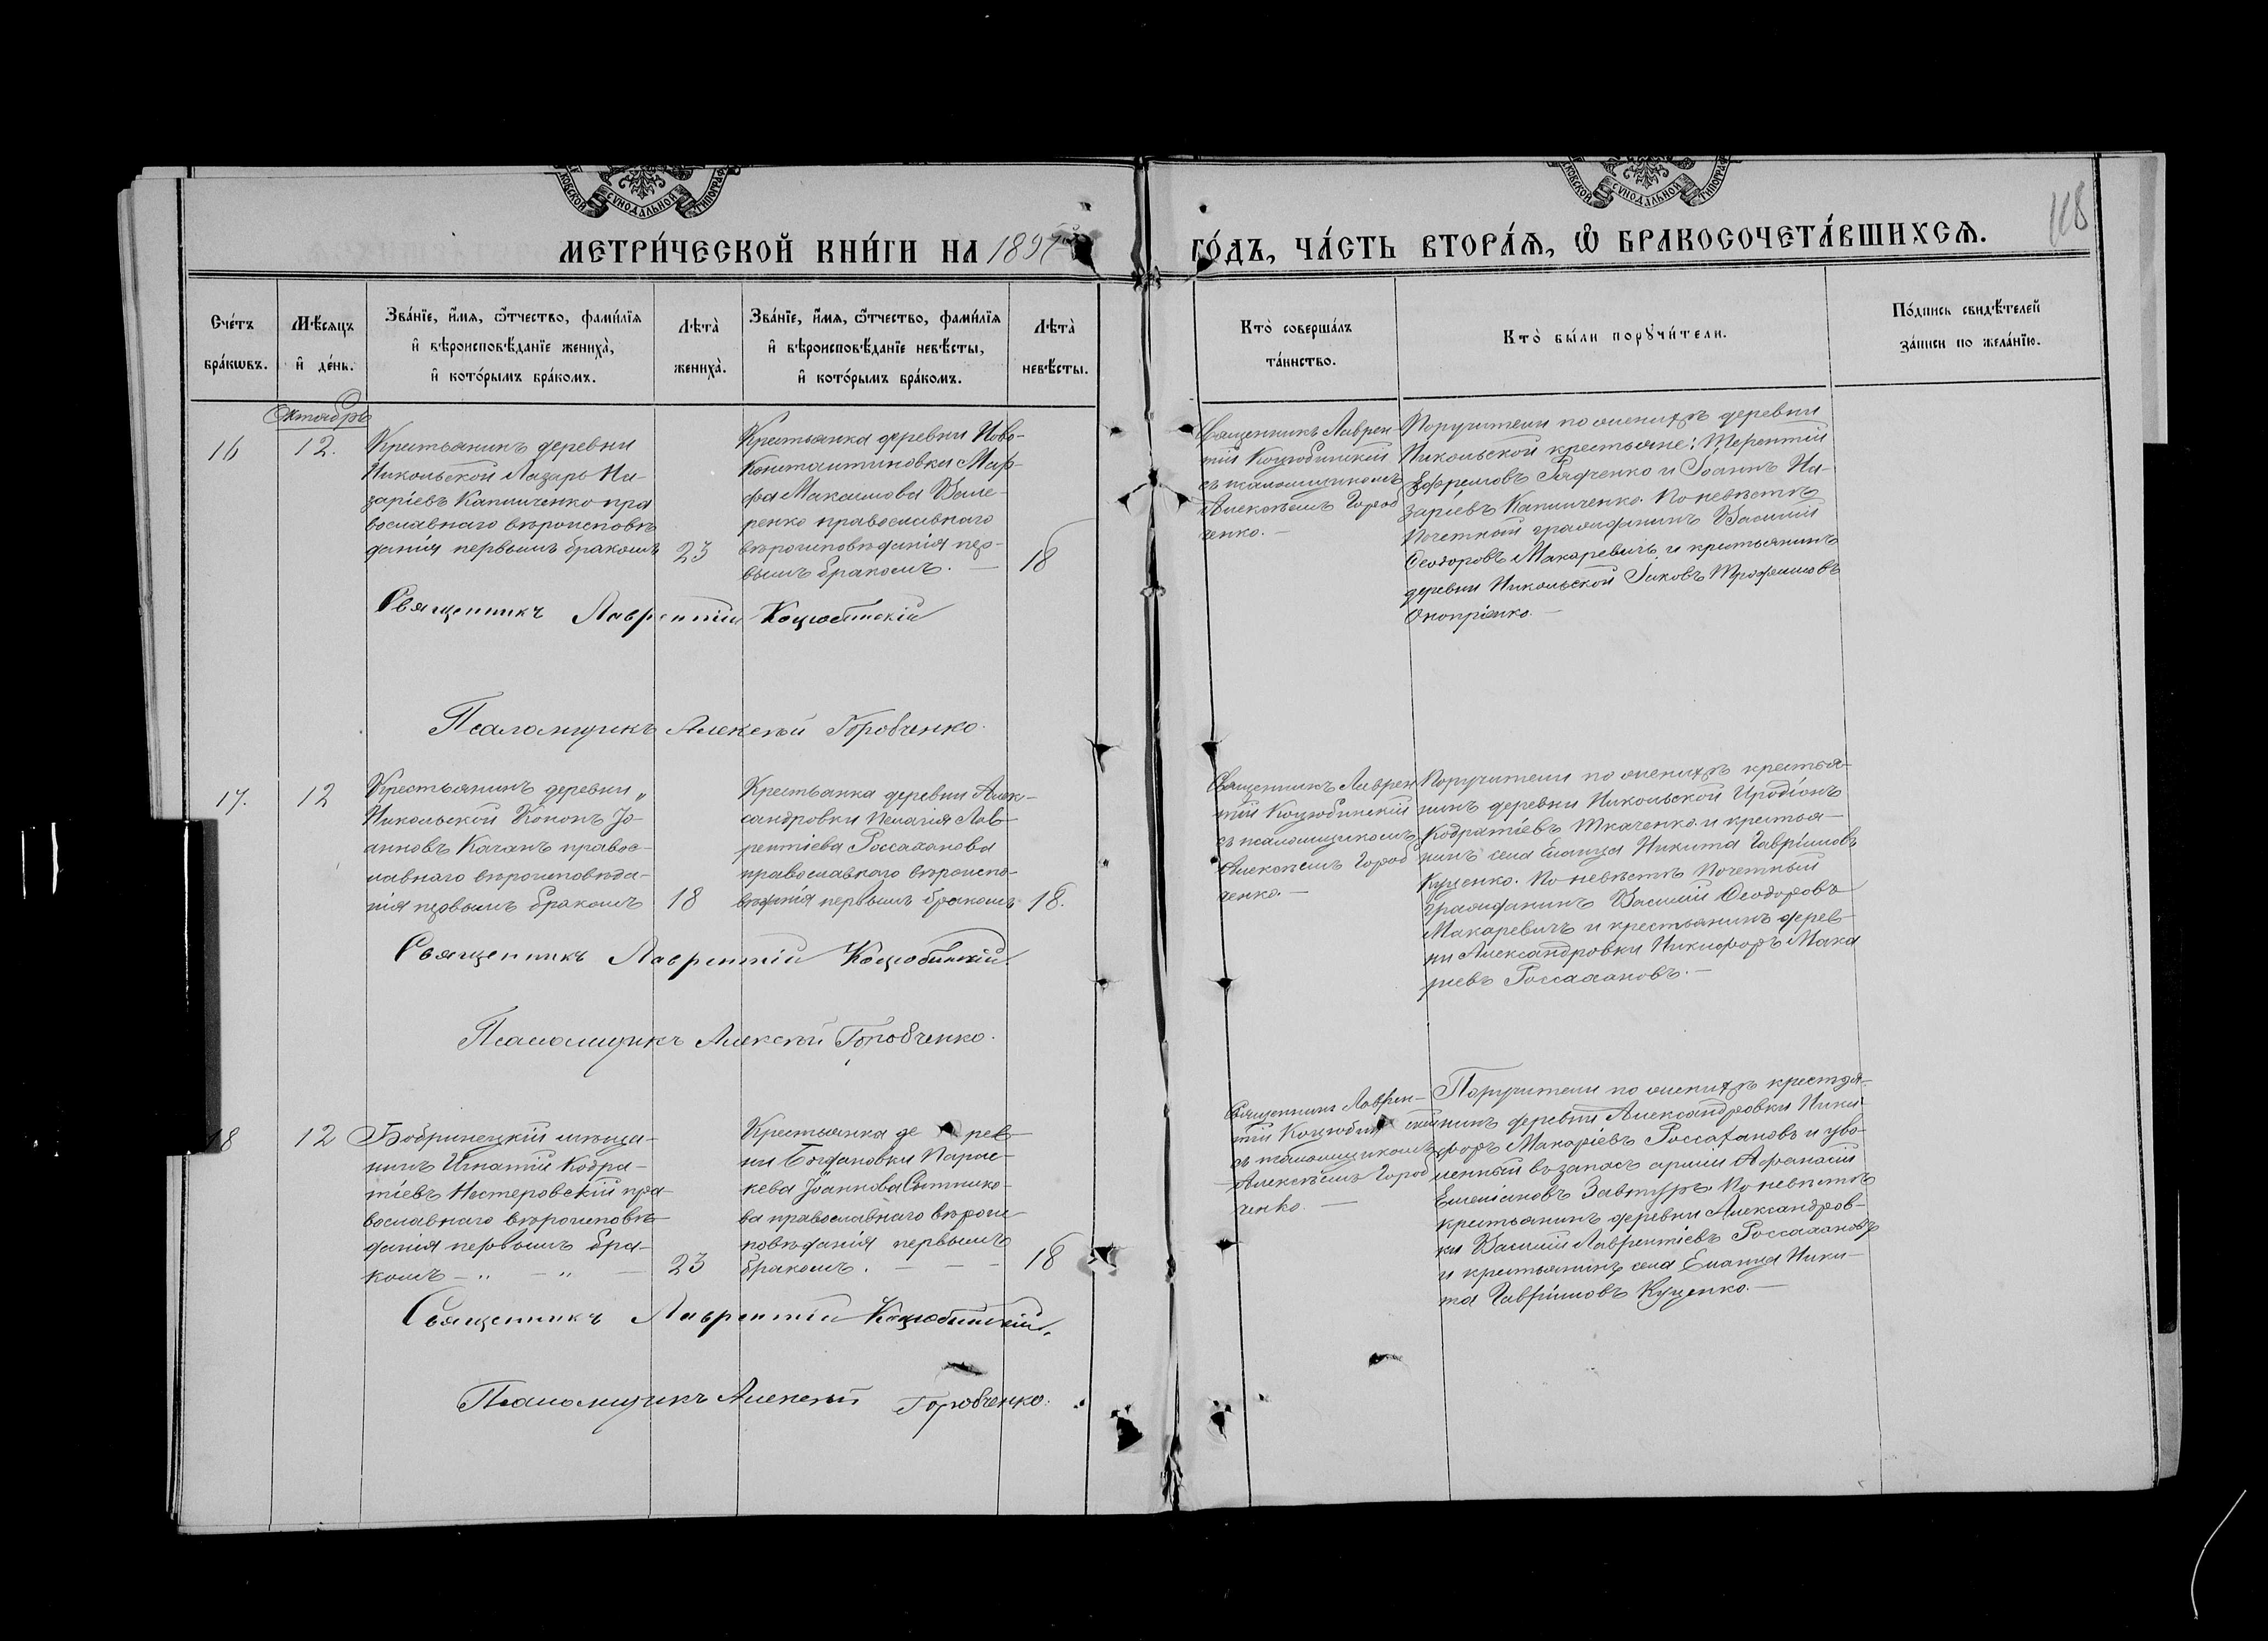 КОВСКОЙ СѴНОДАЛЬНОЙ ТИПОГРАФ
КОВСКОЙ СѴНОДАЛЬНОЙ ТИПОГРАФ
118
МЕТРИ́ЧЕСКОЙ КНИ́ГИ НА 1897й
ГО́ДЪ, ЧА́СТЬ ВТОРА́Ѧ, Ѽ БРАКОСОЧЕТА́ВШИХСѦ.
Сче́тъ
бра́кѡвъ.
Мѣ́сяцъ
и҆ де́нь.
Зва́нїе, и҆́мя, ѻ҆́тчество, фами́лїя
и҆ вѣроисповѣ́данїе жениха̀,
и҆ кото́рымъ бра́комъ.
Лѣта̀
жениха̀.
Зва́нїе, и҆́мя, ѻ҆́тчество, фами́лїя
и҆ вѣроисповѣ́данїе невѣ́сты,
и҆ кото́рымъ бра́комъ.
Лѣта̀
невѣ́сты.
Кто̀ соверша́лъ
та́инство.
Кто̀ бы́ли порꙋчи́тели.
По́дпись свидѣ́телей
за́писи по жела́нїю.
Октябрь
16
12.
Крестьянинъ деревни
Никольской Лазарь На-
заріевъ Капличенко пра
вославнаго вѣроисповѣ
данія первымъ бракомъ
23
Крестьянка деревни Ново-
Константиновки Мар-
фа Максимова Вале-
ренко православнаго
вѣроисповѣданія пер-
вымъ бракомъ. —
18
Священникъ Лаврен-
тій Коцюбинскій
съ псаломщикомъ
Алексѣемъ Гороб
ченко. —
Поручители по женихѣ деревни
Никольской крестьяне: Терентій
Ефремовъ Рядченко и Іоаннъ На-
заріевъ Капличенко. По невѣстѣ
Почетный гражданинъ Василій
Ѳеодоровъ Макаревичъ и крестьянинъ
деревни Никольской Іаковъ Трофимовъ
Онопріенко. —
Священникъ Лаврентій Коцюбинскій
Псаломщикъ Алексѣй Горобченко.
17.
12
Крестьянинъ деревни „
Никольской Кононъ Іо-
анновъ Качанъ правос-
лавнаго вѣроисповѣда-
нія первымъ бракомъ
18
Крестьянка деревни Алек-
сандровки Пелагія Лав-
рентіева Россаханова
православнаго вѣроиспо-
вѣданія первымъ бракомъ
18.
Священникъ Лаврен
тій Коцюбинскій
съ псаломщикомъ
Алексѣемъ Гороб
ченко. —
Поручители по женихѣ крестья-
нинъ деревни Никольской Иродіонъ
Кодратіевъ Ткаченко и крестья-
нинъ села Еланца Никита Гавріиловъ
Куценко. По невѣстѣ Почетный
гражданинъ Василій Ѳеодоровъ
Макаревичъ и крестьянинъ дерев-
ни Александровки Никифоръ Мака
риевъ Россахановъ. —
Священникъ Лаврентій Коцюбинскій.
Псаломщикъ Алексѣй Горобченко.
18
12
Бобринецкій мѣща-
нинъ Игнатій Кодра-
тіевъ Нестеровскій пра-
вославнаго вѣроисповѣ-
данія первымъ бра-
комъ — „ — „ —
23
Крестьянка де рев-
ни Богдановки Парас-
кева Іоаннова Сытнико-
ва православнаго вѣроис-
повѣданія первымъ
бракомъ. — — —
18
Священникъ Лаврен-
тій Коцюбин скій
съ псаломщикомъ
Алексѣемъ Гороб
ченко. —
Поручители по женихѣ крестья-
нинъ деревни Александровки Ники-
форъ Макаріевъ Россахановъ и уво-
ленный въ запасъ арміи Афанасій
Емеліановъ Завтуръ. По невѣстѣ
крестьянинъ деревни Александров-
ки Василій Лаврентіевъ Россахановъ
и крестьянинъ села Еланца Ники-
та Гавріиловъ Куценко. —
Священникъ Лаврентій Коцюбинскій.
Псаломщикъ Алексѣй Горобченко.